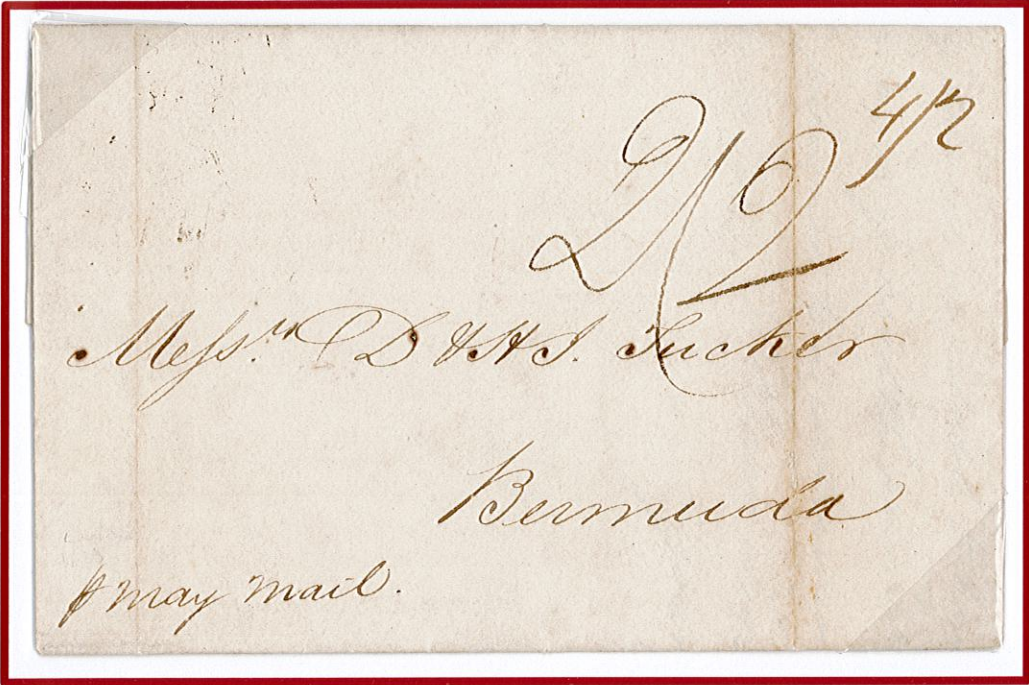 4/2
2/2
Messrs. D & H J. Tucker
Bermuda
p may mail.